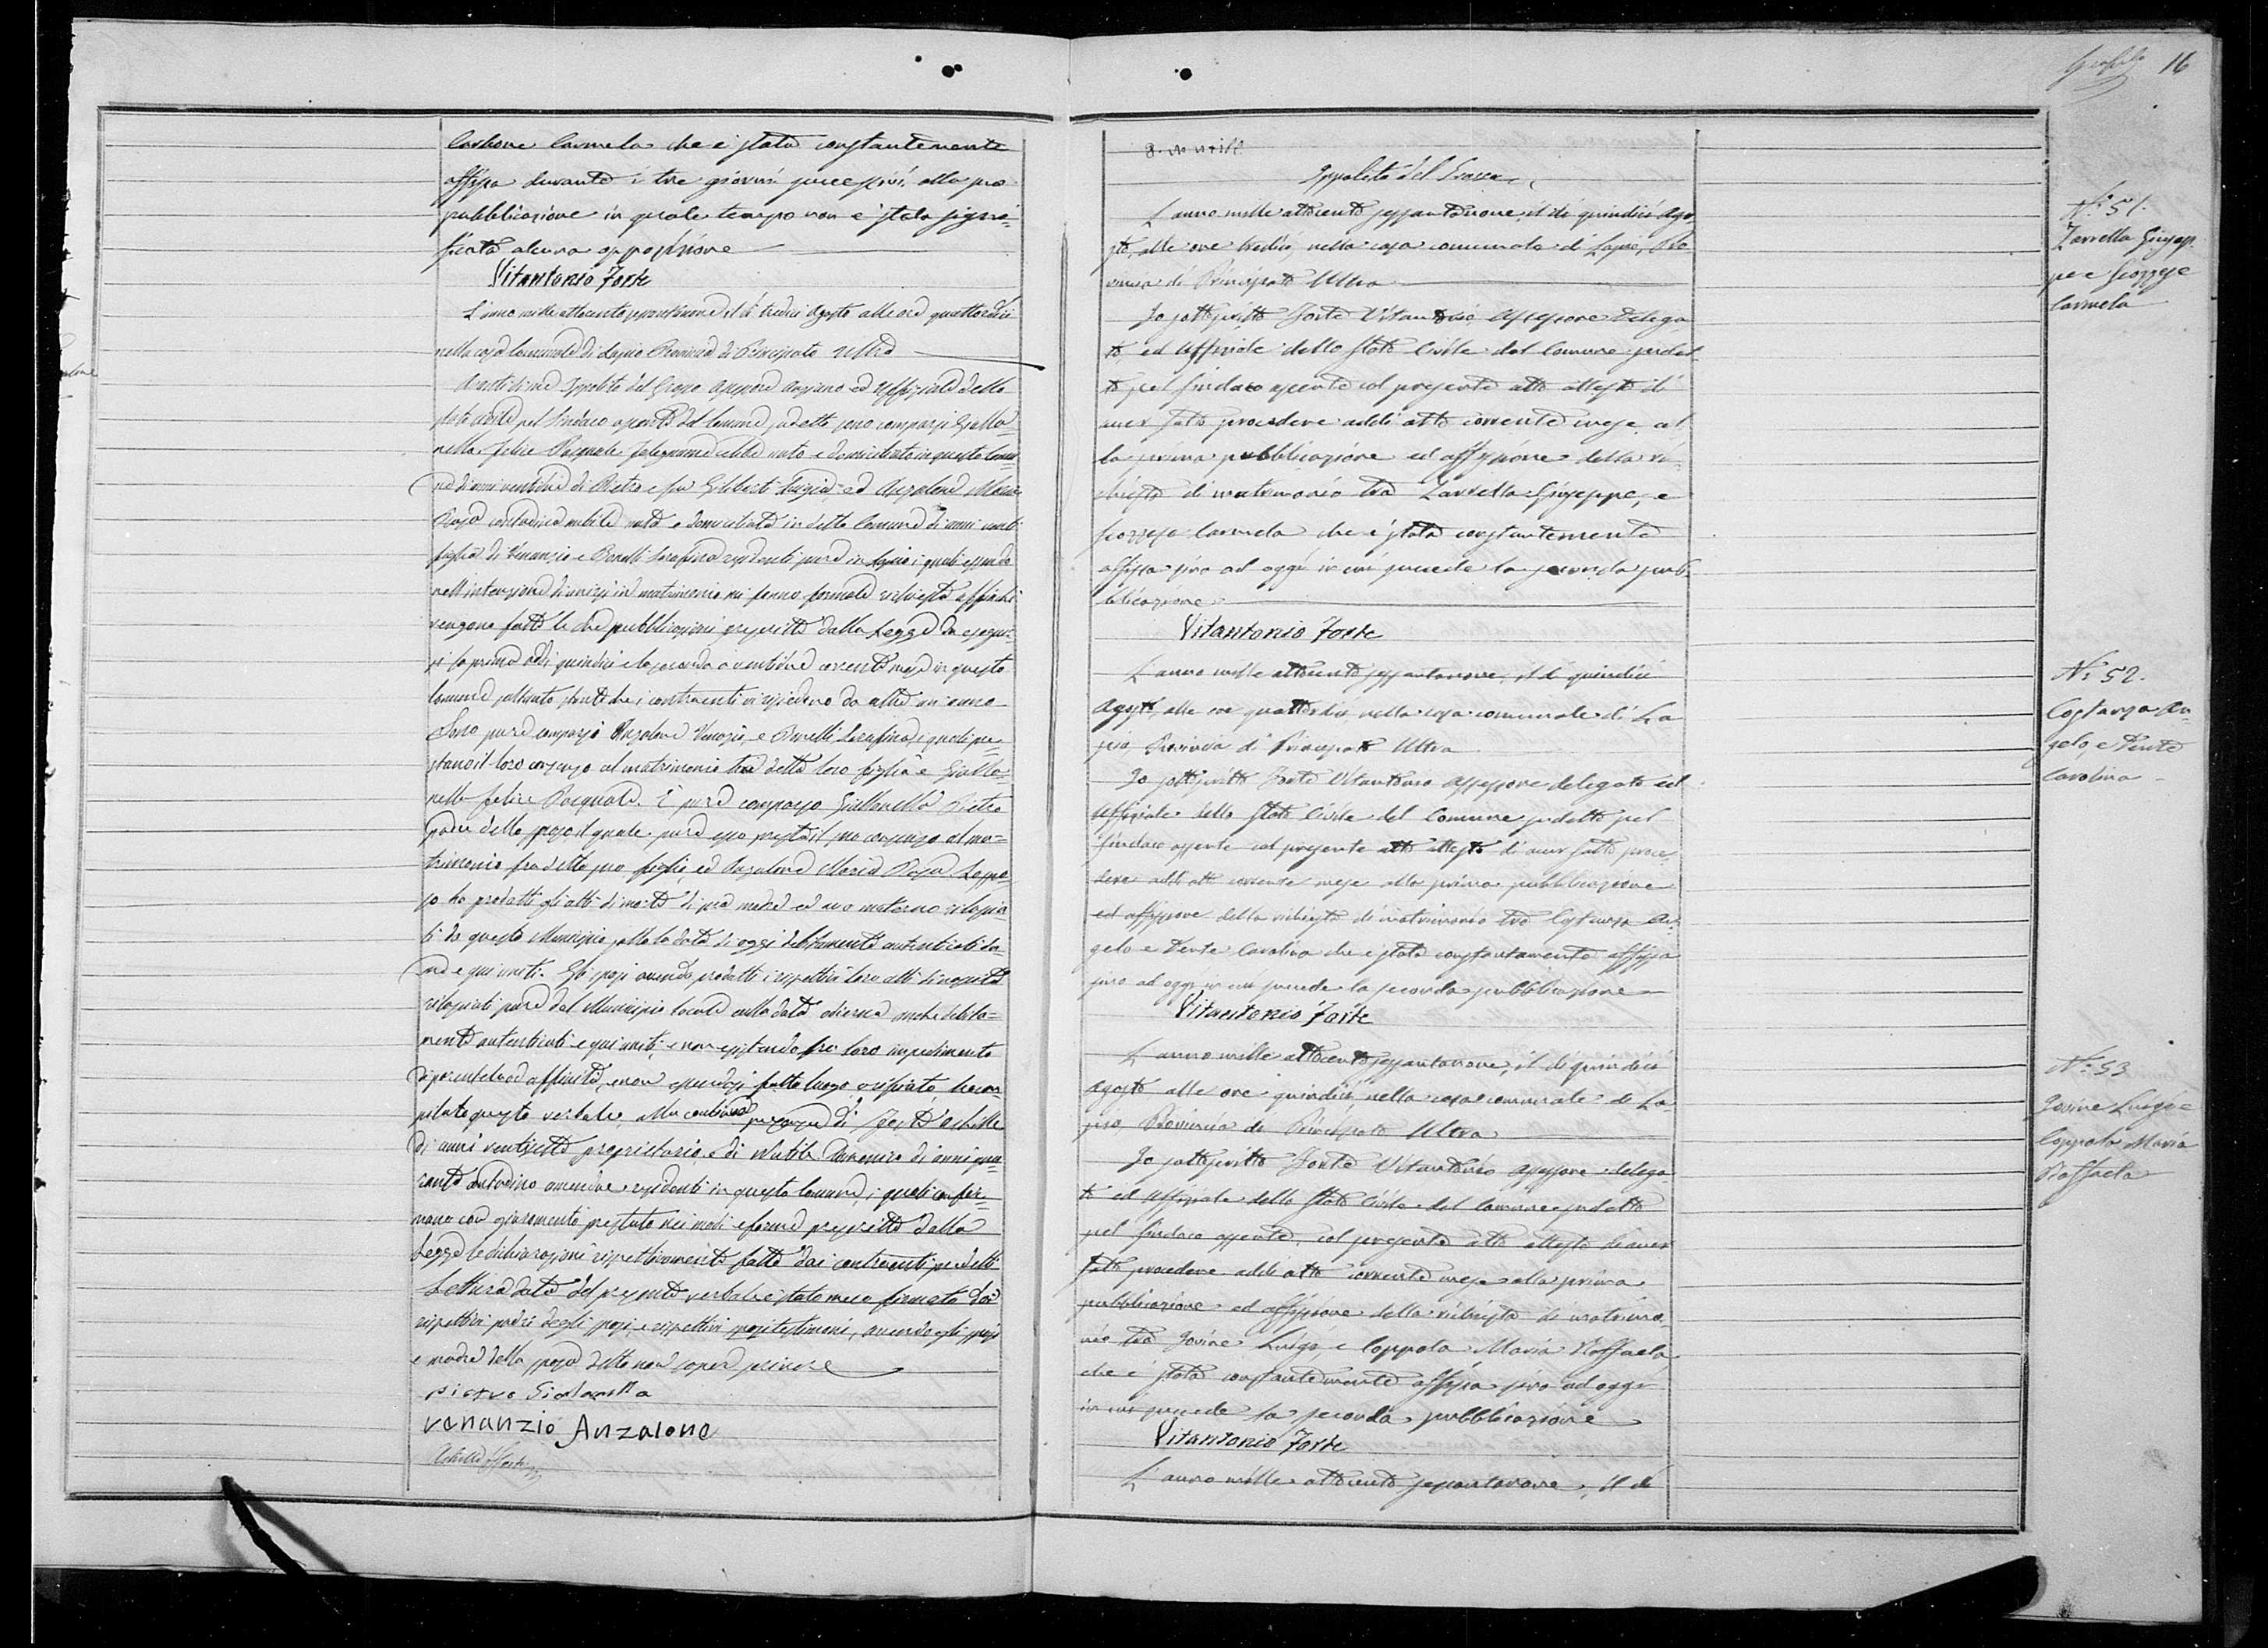 Carbone Carmela che è stata constantemente
affissa durante i tre giorni successivi alla sua
pubblicazione in quale tempo non è stata signi-
ficata alcuna opposizione
Vitantonio Forte
L'anno mille ottocento sessantanove il dì tredici Agosto alle ore quattordici
nella casa Comunale di Lapio Provincia di Principato Ultra
Avanti di me Ippolito del Grosso Assessore anziano ed Uffiziale dello
stato civile pel Sindaco assente del Comune sudetto sono comparsi Giallo-
nella Felice Pasquale falegname celibe nato e domiciliato in questo Comu-
ne di anni ventidue di Pietro e fu Gilberti Luigia ed Anzalone Maria
Rosa contadina nubile nata e domiciliata in detto Comune di anni venti
figlia di Venanzio e Bonelli Serafina residenti pure in Lapio i quali essendo
nell'intenzione di unirsi in matrimonio mi fanno formale richiesta affinchè
vengano fatte le due pubblicazioni prescritte dalla Legge da esegui-
si la prima addì quindici e la seconda a ventidue corrente mese in questo
Comune soltanto stante che i contraenti vi risiedono da oltre un anno
Sono pure comparsi Anzalone Venanzio, e Bonelli Serafina, i quali pre-
stano il loro consenso al matrimonio tra detta loro figlia e Giallo-
nella Felice Pasquale. È pure comparso Giallonella Pietro
padre dello sposo, il quale pure esso presta il suo consenso al ma-
trimonio fra detto suo figlio, ed Anzalone Maria Rosa. Lo spo-
so ha prodotti gli atti di morte di sua madre ed avo materno rilascia-
ti da questo Municipio sotto la data di oggi debitamente autenticati da
me e qui uniti. Gli sposi avendo prodotti i rispettivi loro atti di nascita
rilasciati pure dal Municipio locale colla data odierna anche debita-
mente autenticati e qui uniti, e non esistendo fra loro impedimento
di parentela od affinità, e non essendosi fatto luogo a rifiuto, ho com-
pilato questo verbale, alla continua presenza di Forte Achille
di anni ventisette proprietario, e di Domenico di anni qua-
ranta contadino amendue residenti in questo Comune, i quali confer-
mano con giuramento prestato nei modi e forme prescritte dalla
Legge le dichiarazioni rispettivamente fatte dai contraenti predetti
Lettura data del presente verbale è stato meco firmato dai
rispettivi padri degli sposi, e rispettivi testimoni, avendo gli sposi
e madre della sposa detto non sapere scrivere
pietro Giallonella
venanzio Anzalone
Achille Forte
Ippolito del Grosso
L'anno mille ottocento sessantanove, il dì quindici Ago-
sto, alle ore tredici, nella casa comunale di Lapio, Pro-
vincia di Principato Ultra
Io sottoscritto Forte Vitantonio Assessore Delega
to, ed Uffiziale dello Stato Civile del Comune sudet-
to, pel Sindaco assente col presente atto attesto di
aver fatto procedere addì otto corrente mese al
la prima pubblicazione ed affissione della ri-
chiesta di matrimonio tra Zarrella Giuseppe, e
Scozzese Carmela che è stata constantemente
affissa sino ad oggi in cui succede la seconda pub-
blicazione
Vitantonio Forte
L'anno mille ottocento sessantanove, il dì quindici
Agosto, alle ore quattordici, nella casa comunale di La
pio Provincia di Principato Ultra
Io sottoscritto Forte Vitantonio Assessore delegato ed
Uffiziale dello Stato Civile del Comune sudetto pel
Sindaco assente col presente atto attesto di aver fatto proce-
dere addì otto corrente mese alla prima pubblicazione
ed affissione della richiesta di matrimonio tra Costanza An-
gelo e Dente Carolina che è stata constantemente affissa
sino ad oggi in cui succede la seconda pubblicazione
Vitantonio Forte
L'anno mille ottocento sessantanove, il dì quindici
Agosto alle ore quindici, nella casa comunale di La-
pio, Provincia di Principato Ultra
Io sottoscritto Forte Vitantonio Assessore delega
to ed Uffiziale dello Stato Civile del Comune sudetto
pel Sindaco assente, col presente atto attesto di aver
fatto procedere addì otto corrente mese alla prima
pubblicazione ed affissione della richiesta di matrimo-
nio tra Iovine Luigi e Coppola Maria Raffaela
che è stata constantemente affissa sino ad oggi
in cui succede la seconda pubblicazione
Vitantonio Forte
L'anno mille ottocento sessantanove, il dì
16
N.º 51.
Zarrella Giusep-
pe e Scozzese
Carmela
N.º 52.
Costanza An-
gelo, e Dente
Carolina
N.º 53
Iovine Luigi e
Coppola Maria
Raffaela